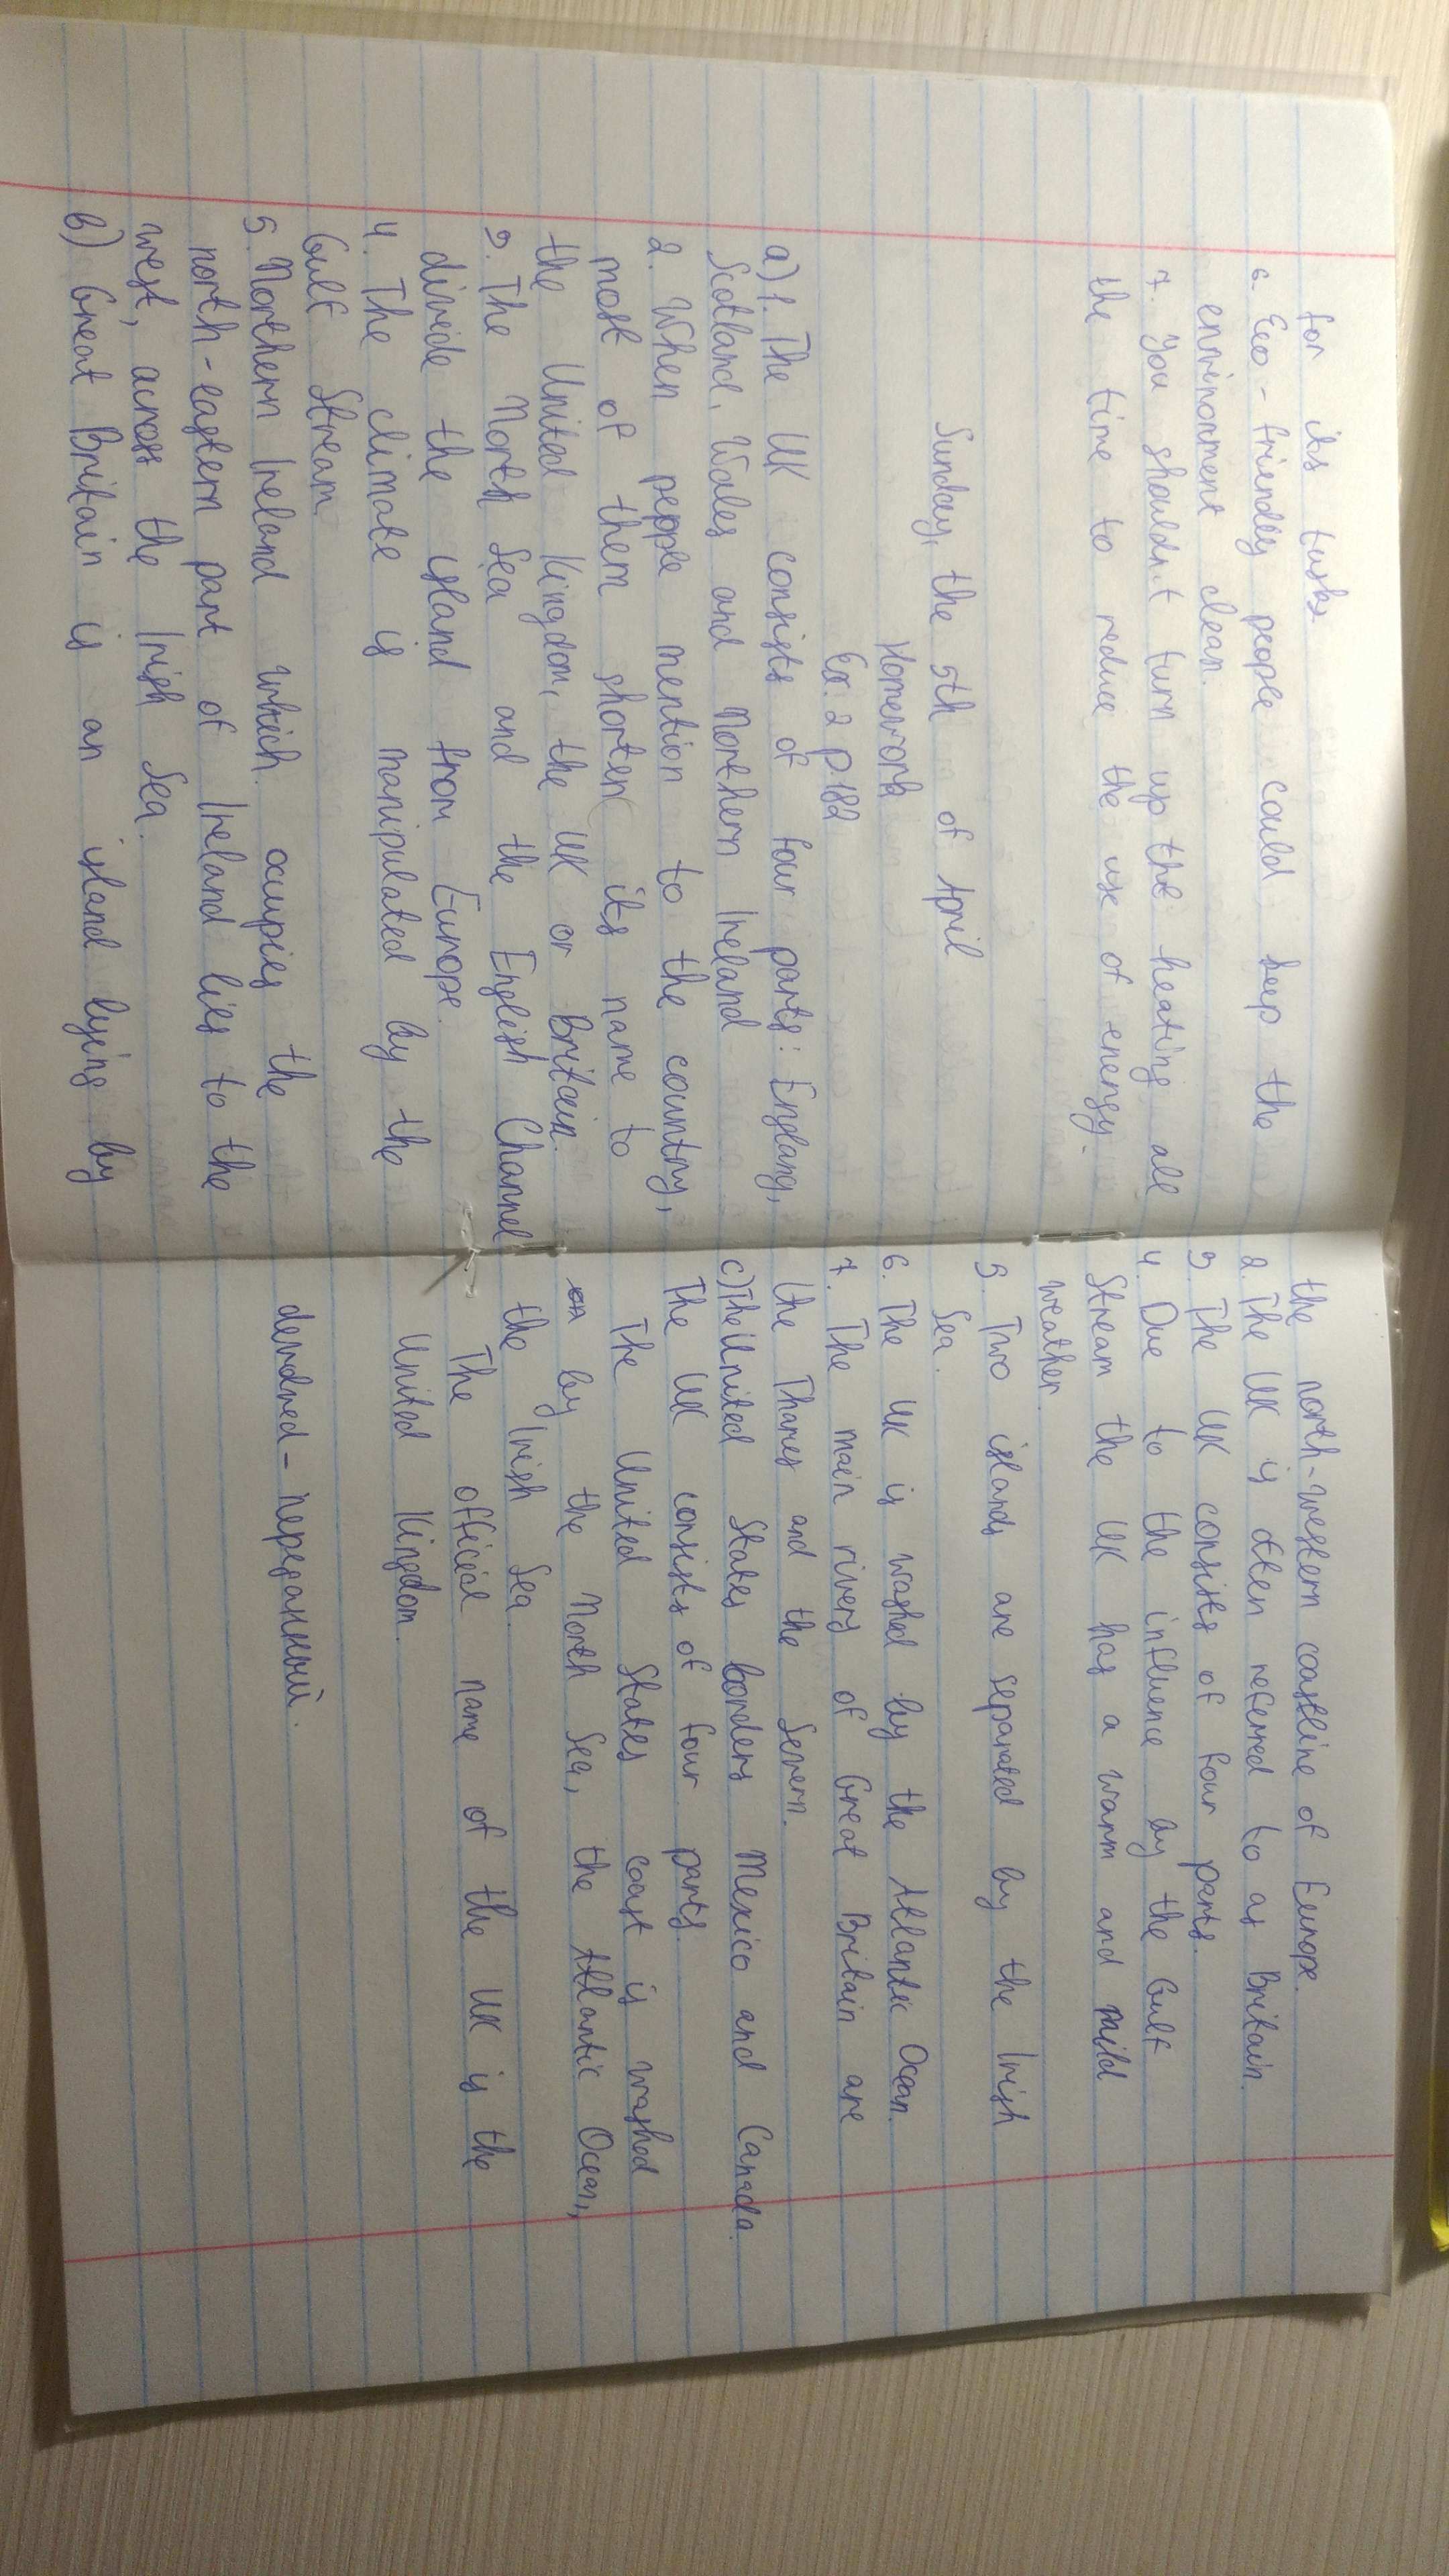 for its tasks
6. Eco-friendly people could keep the
environment clean.
7. You shouldn't turn up the heating all
the time to reduce the use of energy.
Sunday, the 5th of April
Homework
Ex. 2 p. 182
a) 1. The UK consists of four parts: Englang,
Scotland, Wales and Northern Ireland
2. When people mention to the country,
most of them shorten its name to
the United Kingdom, the UK or Britain.
3. The North Sea and the English Channel
divide the island from Europe.
4. The climate is manipulated by the
Gulf Stream.
5. Northern Ireland which occupies the
north-eastern part of Ireland lies to the
west, across the Irish Sea.
b) Great Britain is an island lying by
the north-western coastline of Europe.
2. The UK is often referred to as Britain.
3. The UK consists of four parts.
4. Due to the influence by the Gulf
Stream the UK has a warm and mild
weather.
5. Two islands are separated by the Irish
Sea.
6. The UK is washed by the Atlantic Ocean.
7. The main rivers of Great Britain are
the Thames and the Severn.
c) The United States borders Mexico and Canada.
The UK consists of four parts.
The United States coast is washed
by the North Sea, the Atlantic Ocean,
the Irish Sea.
The official name of the UK is the
United Kingdom.
переданный.